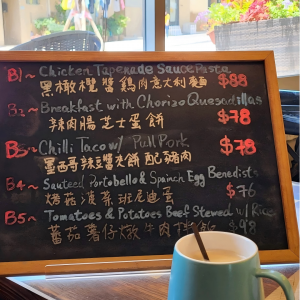 B1~ Chicken Tapenade Sauce Pasta $88
黑橄欖醬鷄肉意大利麵
B2~ Breakfast with Chorizo Quesadillas
辣肉腸芝士蛋餅 $78
B3~ Chilli Taco w/ Pull Pork $78
墨西哥辣豆醬夾餅配豬肉
B4~ Sauteed Portobello & Spainch Egg Benedists
烤菇波菜班尼迪蛋 $76
B5~ Tomatoes & Potatoes Beef Stewed w/ Rice
蕃茄薯仔燉牛肉 飯 $98